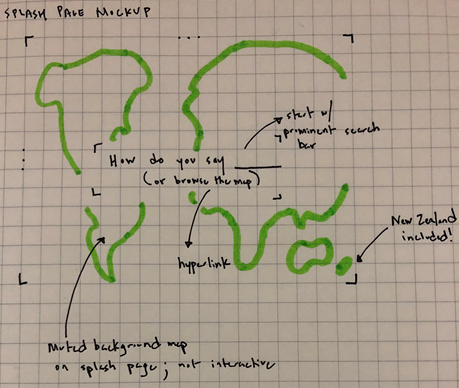 SPLASH PAGE MOCKUP
start w/
prominent search
bar
How do you say
(or browse the map)
New Zealand
included!
hyperlink
Muted background map
on splash page; not interactive